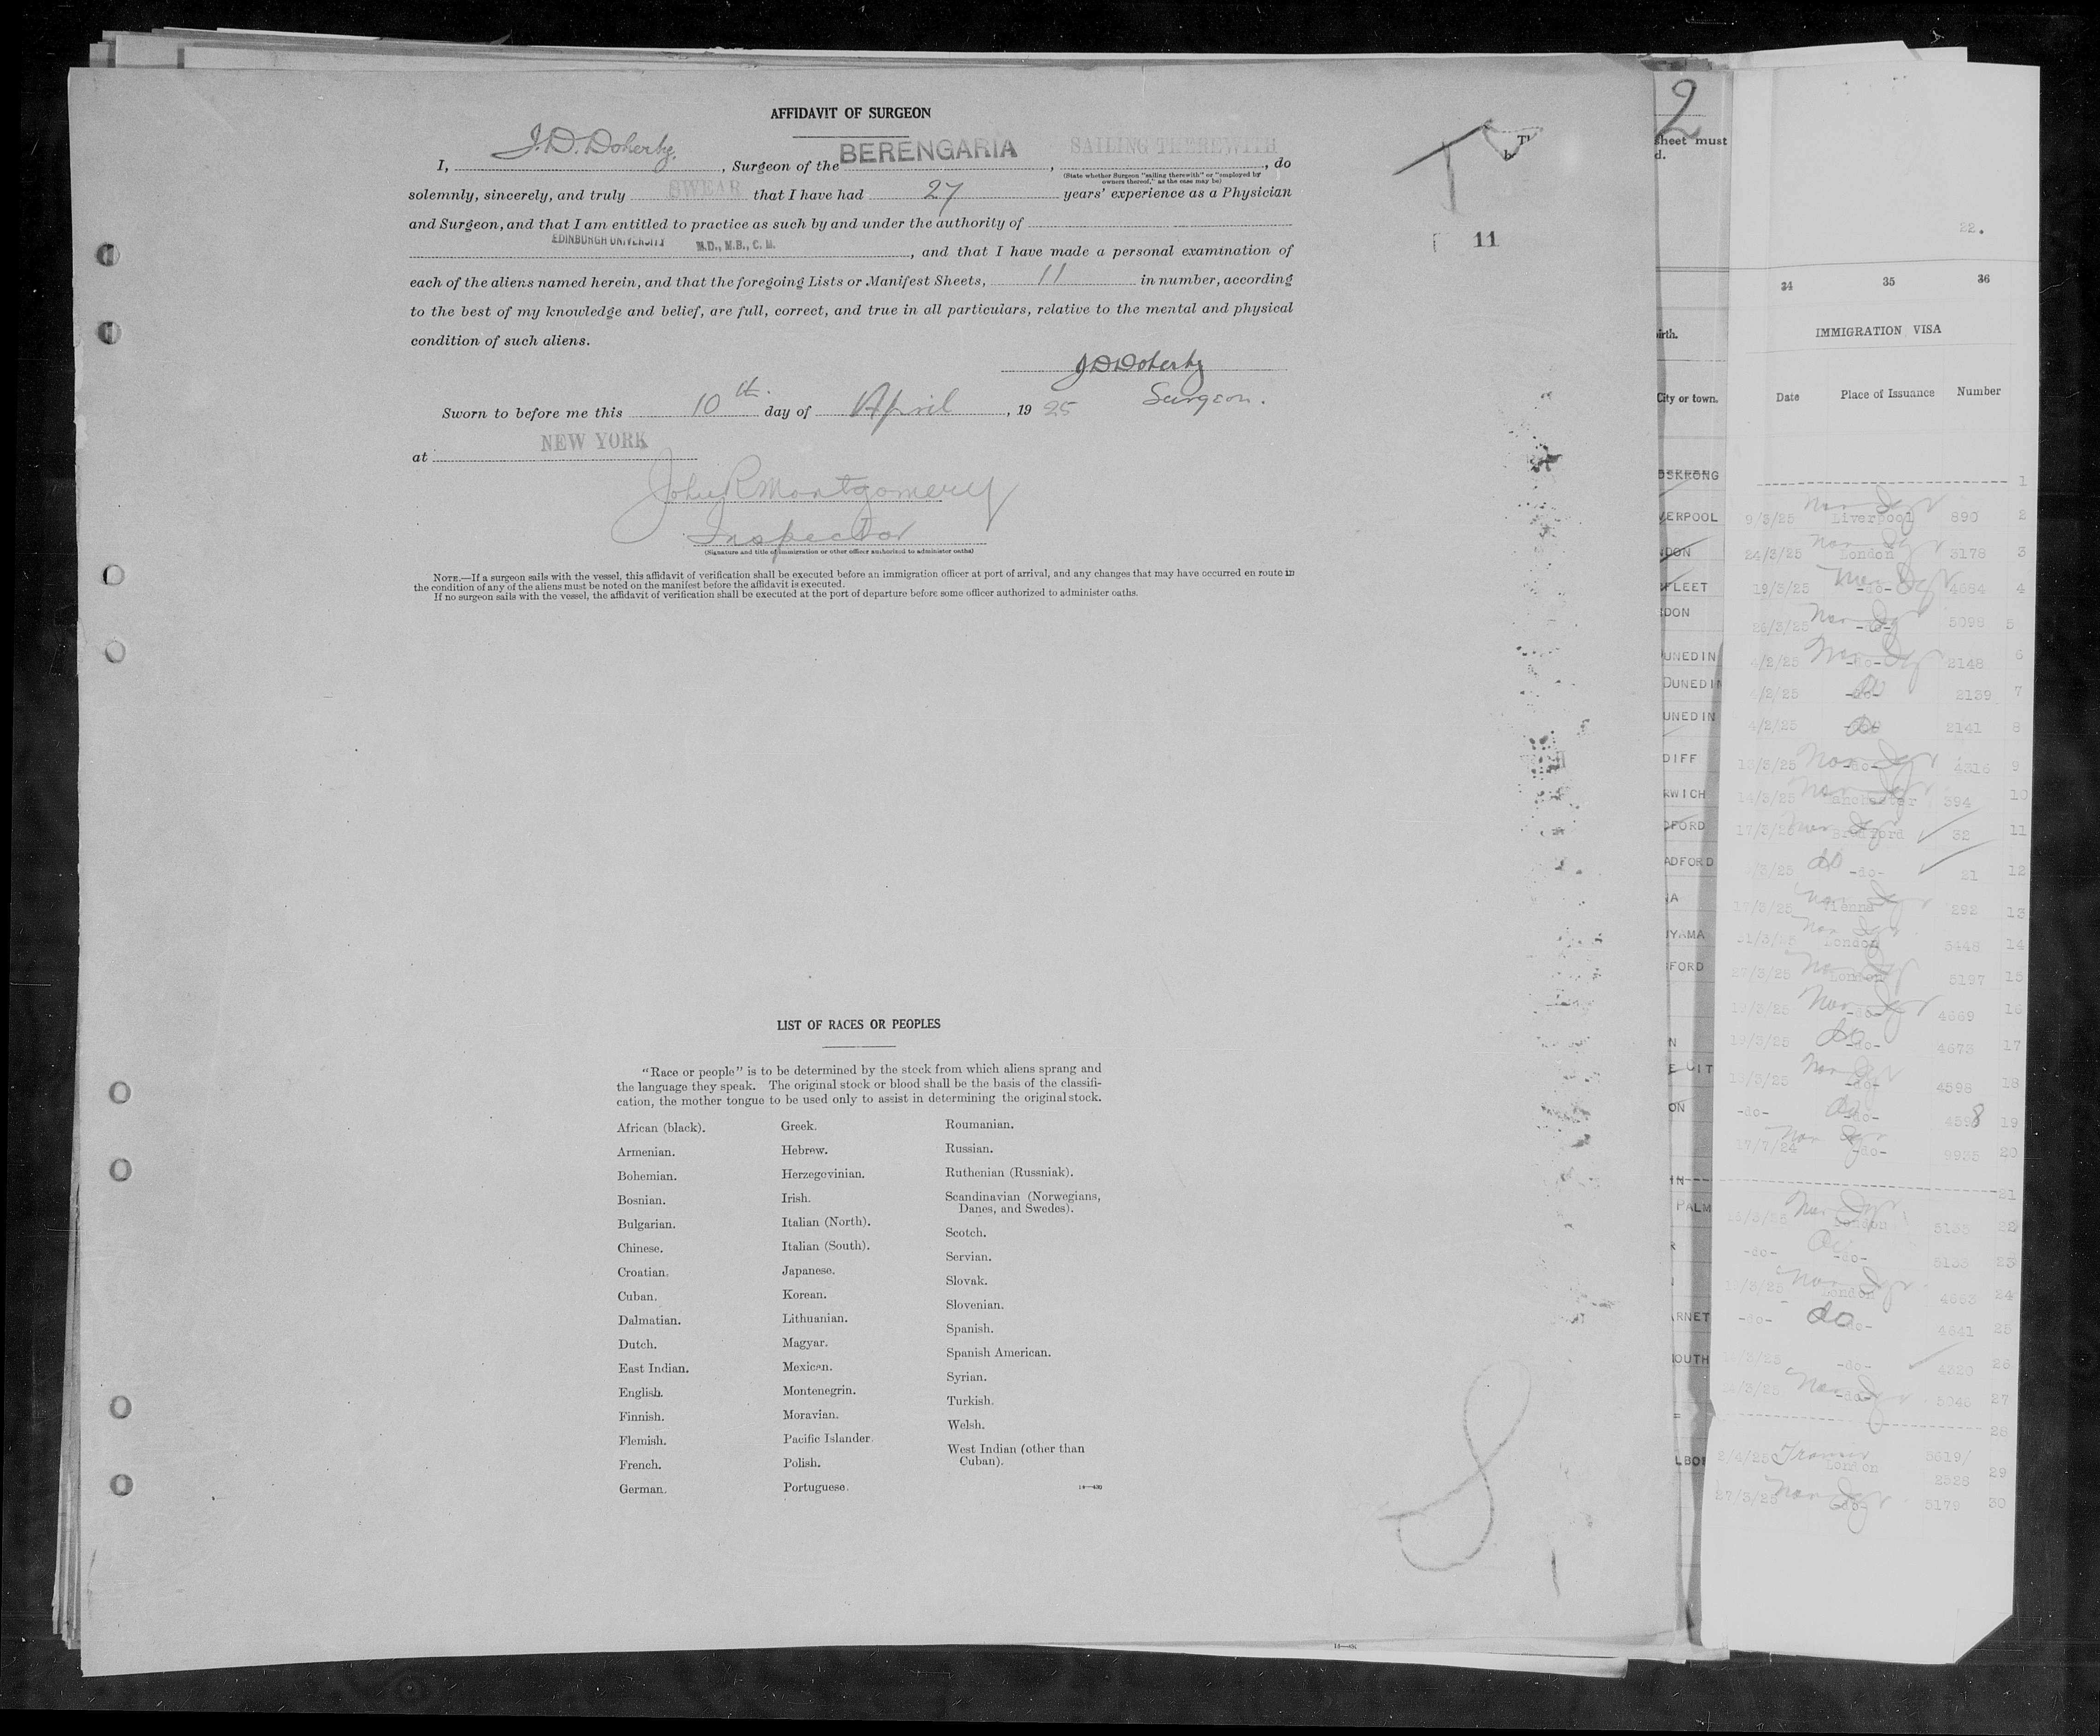 AFFIDAVIT OF SURGEON
I, J.D. Doherty, , Surgeon of the BERENGARIA , SAILING THEREWITH , do
(State whether Surgeon "sailing therewith" or "employed by
owners thereof," as the case may be)
solemnly, sincerely, and truly SWEAR that I have had 27 years' experience as a Physician
and Surgeon, and that I am entitled to practice as such by and under the authority of
EDINBURGH UNIVERSITY M.D., M.B., C. M. , and that I have made a personal examination of
each of the aliens named herein, and that the foregoing Lists or Manifest Sheets, 11 in number, according
to the best of my knowledge and belief, are full, correct, and true in all particulars, relative to the mental and physical
condition of such aliens.
J D Doherty
Surgeon.
Sworn to before me this 10th. day of April , 19 25
at NEW YORK
John R Montgomery
Inspector
(Signature and title of immigration or other officer authorized to administer oaths)
NOTE.—If a surgeon sails with the vessel, this affidavit of verification shall be executed before an immigration officer at port of arrival, and any changes that may have occurred en route in
the condition of any of the aliens must be noted on the manifest before the affidavit is executed.
If no surgeon sails with the vessel, the affidavit of verification shall be executed at the port of departure before some officer authorized to administer oaths.
11
LIST OF RACES OR PEOPLES
"Race or people" is to be determined by the stock from which aliens sprang and
the language they speak. The original stock or blood shall be the basis of the classifi-
cation, the mother tongue to be used only to assist in determining the original stock.
African (black).
Armenian.
Bohemian.
Bosnian.
Bulgarian.
Chinese.
Croatian.
Cuban.
Dalmatian.
Dutch.
East Indian.
English.
Finnish.
Flemish.
French.
German.
Greek.
Hebrew.
Herzegovinian.
Irish.
Italian (North).
Italian (South).
Japanese.
Korean.
Lithuanian.
Magyar.
Mexican.
Montenegrin.
Moravian.
Pacific Islander.
Polish.
Portuguese.
Roumanian.
Russian.
Ruthenian (Russniak).
Scandinavian (Norwegians,
Danes, and Swedes).
Scotch.
Servian.
Slovak.
Slovenian.
Spanish.
Spanish American.
Syrian.
Turkish.
Welsh.
West Indian (other than
Cuban).
2
sheet must
d.
irth.
City or town.
ERPOOL
DON
FLEET
DON
UNEDIN
DUNEDIN
UNEDIN
DIFF
RWICH
FORD
ADFORD
NA
YAMA
FORD
N
E CIT
ON
IN
PALM
R
RNET
OUTH
LBO
22.
34 35 36
IMMIGRATION VISA
Date Place of Issuance Number
1
9/3/25 Liverpool 890 2
24/3/25 London 3178 3
19/3/25 -do- 4684 4
26/3/25 -do- 5098 5
4/2/25 -do- 2148 6
4/2/25 -do- 2139 7
4/2/25 do 2141 8
13/3/25 -do- 4316 9
14/3/25 Manchester 394 10
17/3/25 Bradford 32 11
/3/25 do -do- 21 12
17/3/25 Vienna 292 13
31/3/25 London 5448 14
27/3/25 London 5197 15
19/3/25 -do- 4669 16
19/3/25 do -do- 4673 17
18/3/25 -do- 4598 18
-do- do -do- 4598 19
17/7/24 -do- 9935 20
21
/3/25 London 5135 22
-do- -do- 5133 23
/3/25 London 4663 24
-do- do -do- 4641 25
/3/25 -do- 4320 26
/3/25 -do- 5046 27
28
2/4/25 London 5619/
2526 29
27/3/25 -do- 5179 30